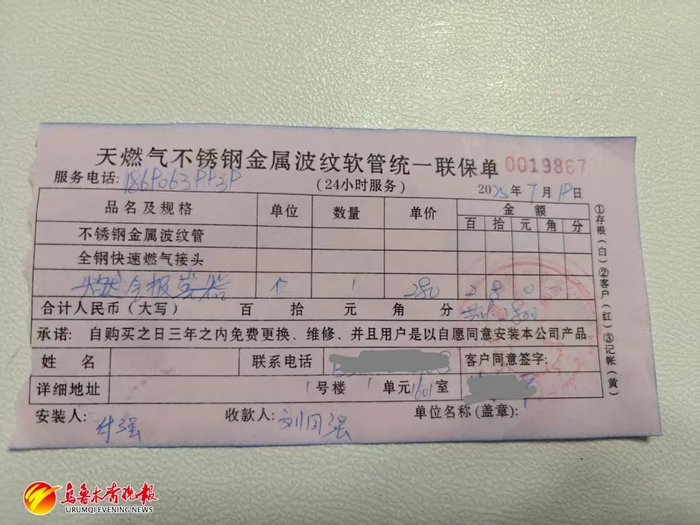 天燃气不锈钢金属波纹软管统一联保单 0019867
服务电话: (24小时服务) 2025年7月19日
品名及规格 单位 数量 单价 金额
百 拾 元 角 分
不锈钢金属波纹管
全钢快速燃气接头
个 1 280 2 8 0
合计人民币(大写) 百 拾 元 角 分
承诺: 自购买之日三年之内免费更换、维修、并且用户是以自愿同意安装本公司产品
姓名 联系电话 客户同意签字:
详细地址 1号楼 1单元1601室
安装人: 付强 收款人: 刘国强 单位名称(盖章):
①存根(白)②客户(红)③记帐(黄)
乌鲁木齐晚报
URUMQI EVENING NEWS